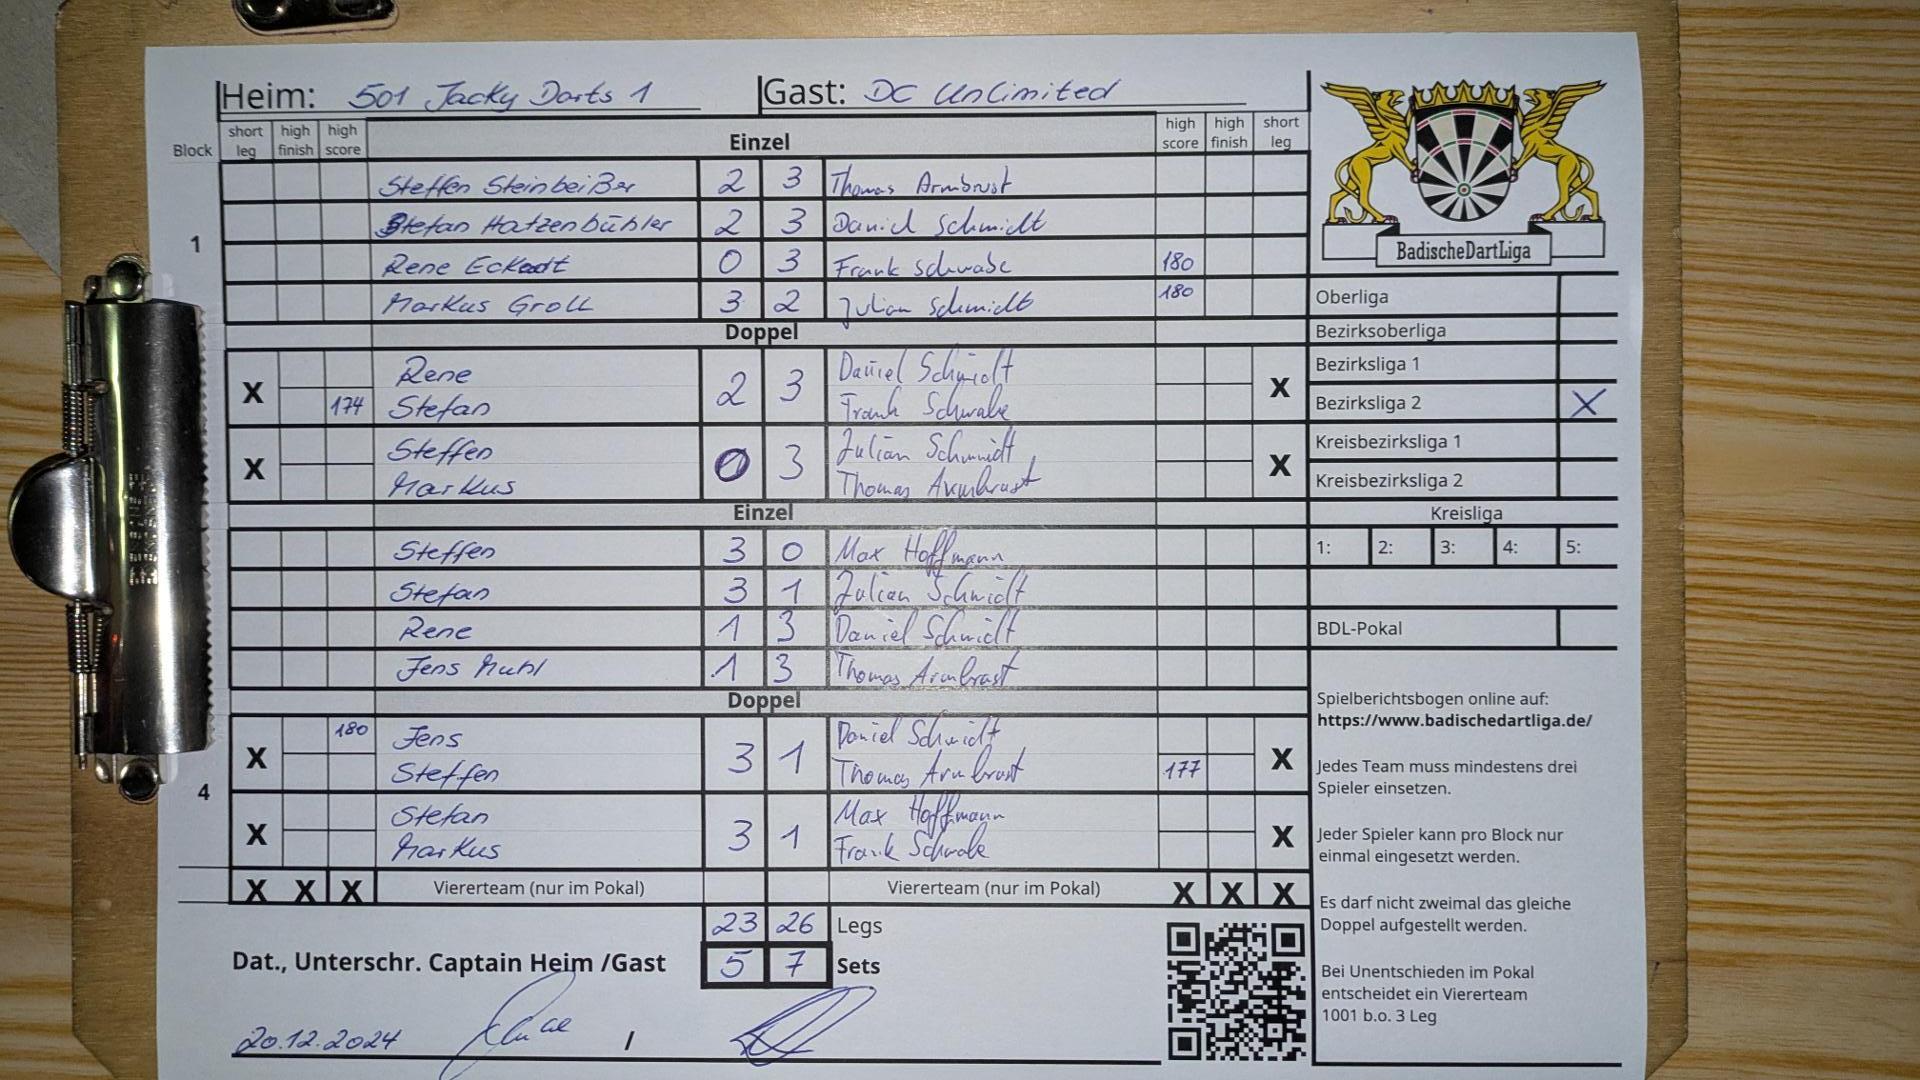 Heim: 501 Jacky Darts 1 Gast: DC Unlimited
Block short leg high finish high score Einzel high score high finish short leg
Steffen Steinbeißer 2 3 Thomas Armbrust
Stefan Hatzenbühler 2 3 Daniel Schmidt
1
Rene Eckert 0 3 Frank Schwabe 180
Markus Groll 3 2 Julian Schmidt 180
Doppel
Rene Daniel Schmidt
X 2 3 X
174 Stefan Frank Schwabe
Steffen Julian Schmidt
X 0 3 X
Markus Thomas Armbrust
Einzel
Steffen 3 0 Max Hoffmann
Stefan 3 1 Julian Schmidt
Rene 1 3 Daniel Schmidt
Jens Muhl 1 3 Thomas Armbrust
Doppel
180 Jens Daniel Schmidt
X 3 1 X
Steffen Thomas Armbrust 177
4
Stefan Max Hoffmann
X 3 1 X
Markus Frank Schwabe
X X X Viererteam (nur im Pokal) Viererteam (nur im Pokal) X X X
23 26 Legs
Dat., Unterschr. Captain Heim /Gast 5 7 Sets
20.12.2024 /
BadischeDartLiga
Oberliga
Bezirksoberliga
Bezirksliga 1
Bezirksliga 2 X
Kreisbezirksliga 1
Kreisbezirksliga 2
Kreisliga
1: 2: 3: 4: 5:
BDL-Pokal
Spielberichtsbogen online auf:
https://www.badischedartliga.de/
Jedes Team muss mindestens drei
Spieler einsetzen.
Jeder Spieler kann pro Block nur
einmal eingesetzt werden.
Es darf nicht zweimal das gleiche
Doppel aufgestellt werden.
Bei Unentschieden im Pokal
entscheidet ein Viererteam
1001 b.o. 3 Leg